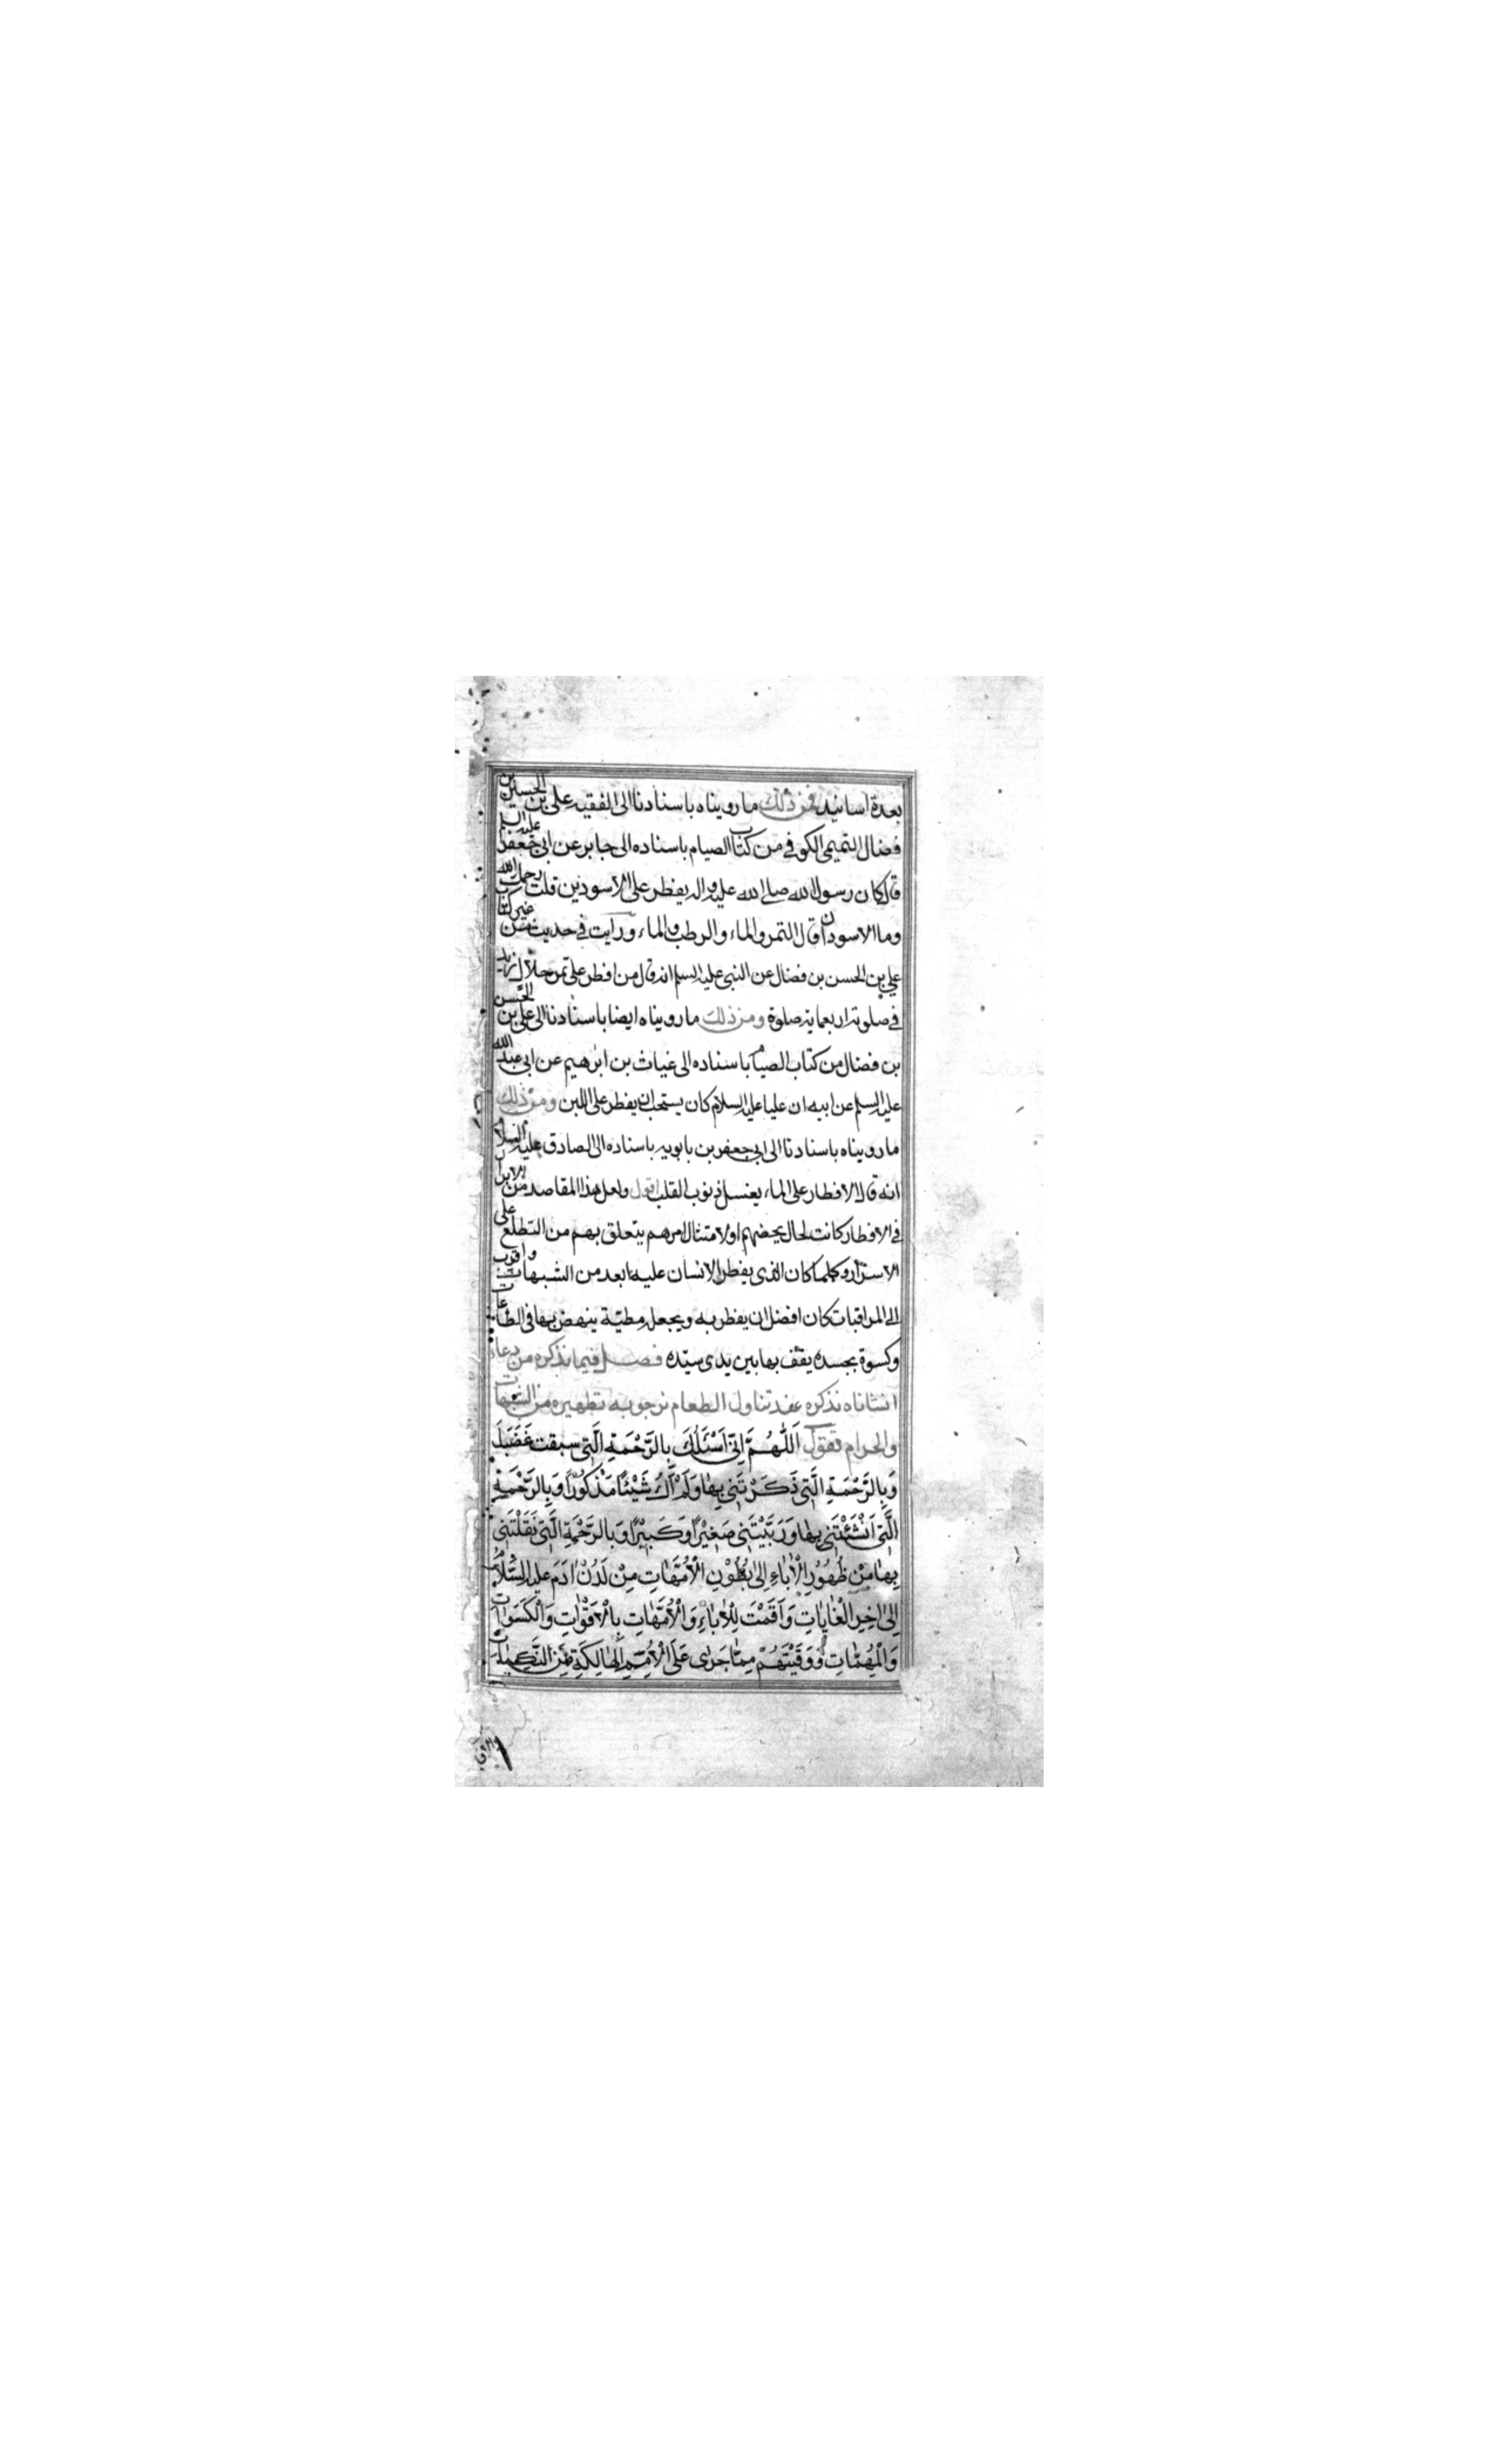 بعدة اسانيد فمن ذلك ما رويناه باسنادنا الى الفقيه علي بن الحسن بن
فضال التيمي الكوفي من كتاب الصيام باسناده الى جابر عن ابي جعفر عليه السلم
قال كان رسول الله صلى الله عليه واله يفطر على الاسودين قلت رحمك الله
وما الاسودان قال التمر والماء والرطب والماء ورايت في حديث من غير كتاب
علي بن الحسن بن فضال عن النبي عليه السلم انه قال من افطر على تمر حلال زيد
في صلوته اربعماية صلوة ومن ذلك ما رويناه ايضا باسنادنا الى علي بن الحسن
بن فضال من كتاب الصيام باسناده الى غياث بن ابرهيم عن ابي عبد الله
عليه السلم عن ابيه ان عليا عليه السلام كان يستحب ان يفطر على اللبن ومن ذلك
ما رويناه باسنادنا الى ابي جعفر بن بابويه باسناده الى الصادق عليه السلام
انه قال الافطار على الماء يغسل ذنوب القلب اقول ولعل هذا المقاصد من الابرار
في الافطار كانت لحال يخصهم او لامتثال امرهم يتعلق بهم من التطلع على
الاسرار وكلما كان الذي يفطر الانسان عليه ابعد من الشبهات واقرب
الى المراقبات كان افضل ان يفطر به ويجعل مطيّة ينهض بها في الطاعات
وكسوة بجسده يقف بها بين يدى سيّده فصل فيما نذكره من دعاء
انشاناه نذكره عند تناول الطعام نرجو به تطهيره من الشبهات
والحرام تقول اَللّٰهُمَّ اِنّي اَسْئَلُكَ بِالرَّحْمَةِ الَّتي سبقت غَضَبَكَ
وَبِالرَّحْمَةِ الَّتي ذَكَرْتَني بِهٰا وَلَمْ اَكُ شَيْئًا مَذْكُوْرًا وَبِالرَّحْمَةِ
الَّتي اَنْشَئْتَني بِهٰا وَرَبَّيْتَني صَغِيْرًا وَكَبِيْرًا وَبِالرَّحْمَةِ الَّتي نَقَلْتَني
بِهٰا مِنْ ظُهُوْرِ الْاٰبٰاءِ اِلىٰ بُطُوْنِ الْاُمَّهٰاتِ مِنْ لَدُنْ اٰدَمَ عليه السّلام
اِلىٰ اٰخِرِ الْغٰايٰاتِ وَاَقَمْتَ لِلْاٰبٰاءِ وَالْاُمَّهٰاتِ بِالْاَقْوٰاتِ وَالْكَسَوٰاتِ
وَالْمُهِمّٰاتِ وَوَقَيْتَهُمْ مِمّٰا جَرىٰ عَلَى الْاُمَمِ الْهٰالِكَةِ مِنَ النَّكَبٰاتِ